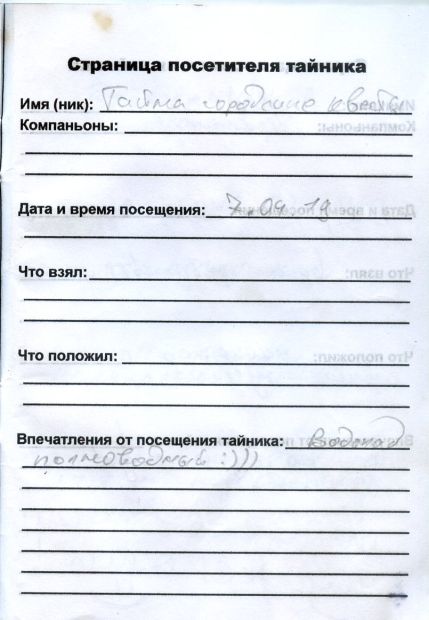 Страница посетителя тайника
Имя (ник): Тайна городские квесты
Компаньоны:
Дата и время посещения: 7.04 19
Что взял:
Что положил:
Впечатления от посещения тайника: Водопад
полноводный :)))